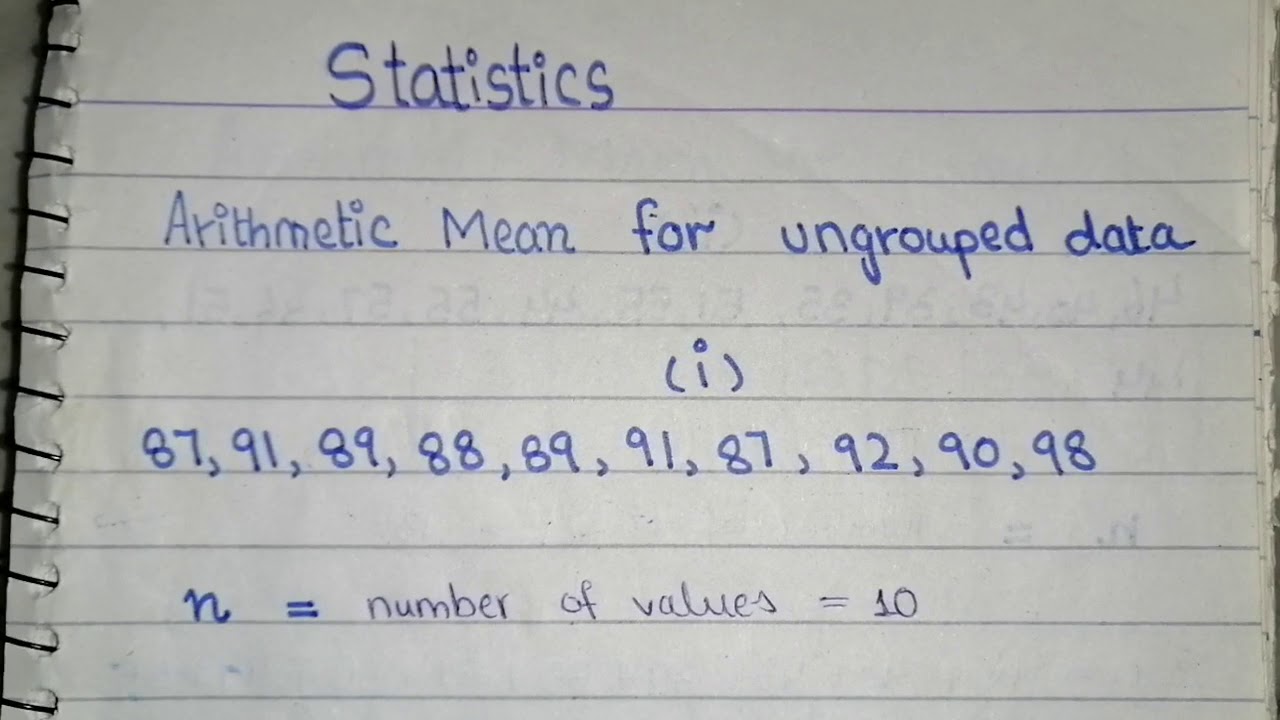 Statistics
Arithmetic Mean for ungrouped data
(i)
87, 91, 89, 88, 89, 91, 87, 92, 90, 98
n = number of values = 10